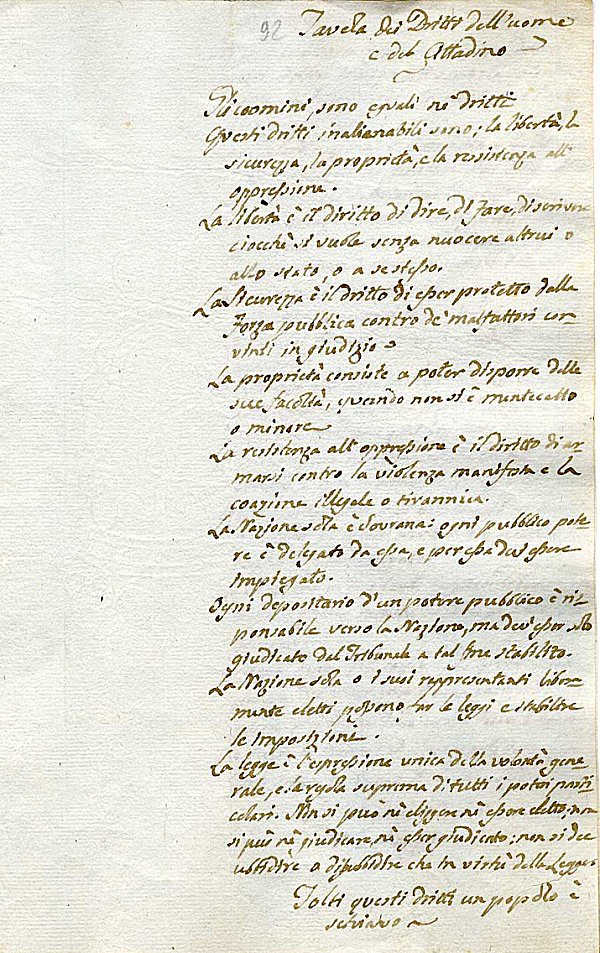 92
Tavola dei Dritti dell'uomo
e del Cittadino
Gli uomini, sono eguali ne' dritti
Questi dritti inalienabili sono: la libertà, la
sicurezza, la proprietà, e la resistenza all'
oppressione.
La libertà è il diritto di dire, di fare, di scrivere
ciocchè si vuole senza nuocere altrui o
allo stato, o a se stesso.
La sicurezza è il dritto di esser protetto dalla
Forza pubblica contro de' malfattori con-
vinti in giudizio
La proprietà consiste a poter disporre delle
sue facoltà, quando non si è mentecatto
o minore
La resistenza all'oppressione è il diritto di ar-
marsi contro la violenza manifesta e la
coazione illegale o tirannica.
La Nazione sola è sovrana: ogni pubblico pote-
re è delegato da essa, e per essa dev'essere
impiegato.
Ogni depositario d'un potere pubblico è ris-
ponsabile verso la Nazione, ma dev'esser solo
giudicato dal Tribunale a tal fine stabilito.
La Nazione sola o i suoi rappresentanti libera-
mente eletti possono far le leggi e stabilire
le imposizioni.
La legge è l'espressione unica della volontà gene-
rale, e la regola suprema di tutti i poteri parti-
colari. Non si può nè eliggere nè essere eletto; non
si può nè giudicare, nè esser giudicato; non si dee
ubbidire o disubbidire che in virtù della Legge.
Tolti questi dritti un popolo è
schiavo